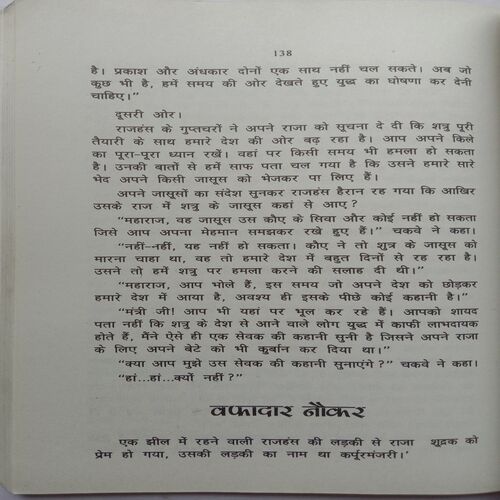 138
है। प्रकाश और अंधकार दोनों एक साथ नहीं चल सकते। अब जो
कुछ भी है, हमें समय की ओर देखते हुए युद्ध का घोषणा कर देनी
चाहिए।”
दूसरी ओर।
राजहंस के गुप्तचरों ने अपने राजा को सूचना दे दी कि शत्रु पूरी
तैयारी के साथ हमारे देश की ओर बढ़ रहा है। आप अपने किले
का पूरा-पूरा ध्यान रखें। वहां पर किसी समय भी हमला हो सकता
है। उनकी बातों से हमें साफ पता चल गया है कि उसने हमारे सारे
भेद अपने किसी जासूस को भेजकर पा लिए हैं।
अपने जासूसों का संदेश सुनकर राजहंस हैरान रह गया कि आखिर
उसके राज में शत्रु के जासूस कहां से आए?
“महाराज, वह जासूस उस कौए के सिवा और कोई नहीं हो सकता
जिसे आप अपना मेहमान समझकर रखे हुए हैं।” चकवे ने कहा।
“नहीं-नहीं, यह नहीं हो सकता। कौए ने तो शुत्र के जासूस को
मारना चाहा था, वह तो हमारे देश में बहुत दिनों से रह रहा है।
उसने तो हमें शत्रु पर हमला करने की सलाह दी थी।”
“महाराज, आप भोले हैं, इस समय जो अपने देश को छोड़कर
हमारे देश में आया है, अवश्य ही इसके पीछे कोई कहानी है।”
“मंत्री जी! आप भी यहां पर भूल कर रहे हैं। आपको शायद
पता नहीं कि शत्रु के देश से आने वाले लोग युद्ध में काफी लाभदायक
होते हैं, मैंने ऐसे ही एक सेवक की कहानी सुनी है जिसने अपने राजा
के लिए अपने बेटे को भी कुर्बान कर दिया था।”
“क्या आप मुझे उस सेवक की कहानी सुनाएंगे?” चकवे ने कहा।
“हां...हां...क्यों नहीं?”
वफादार नौकर
एक झील में रहने वाली राजहंस की लड़की से राजा शूद्रक को
प्रेम हो गया, उसकी लड़की का नाम था कर्पूरमंजरी।’